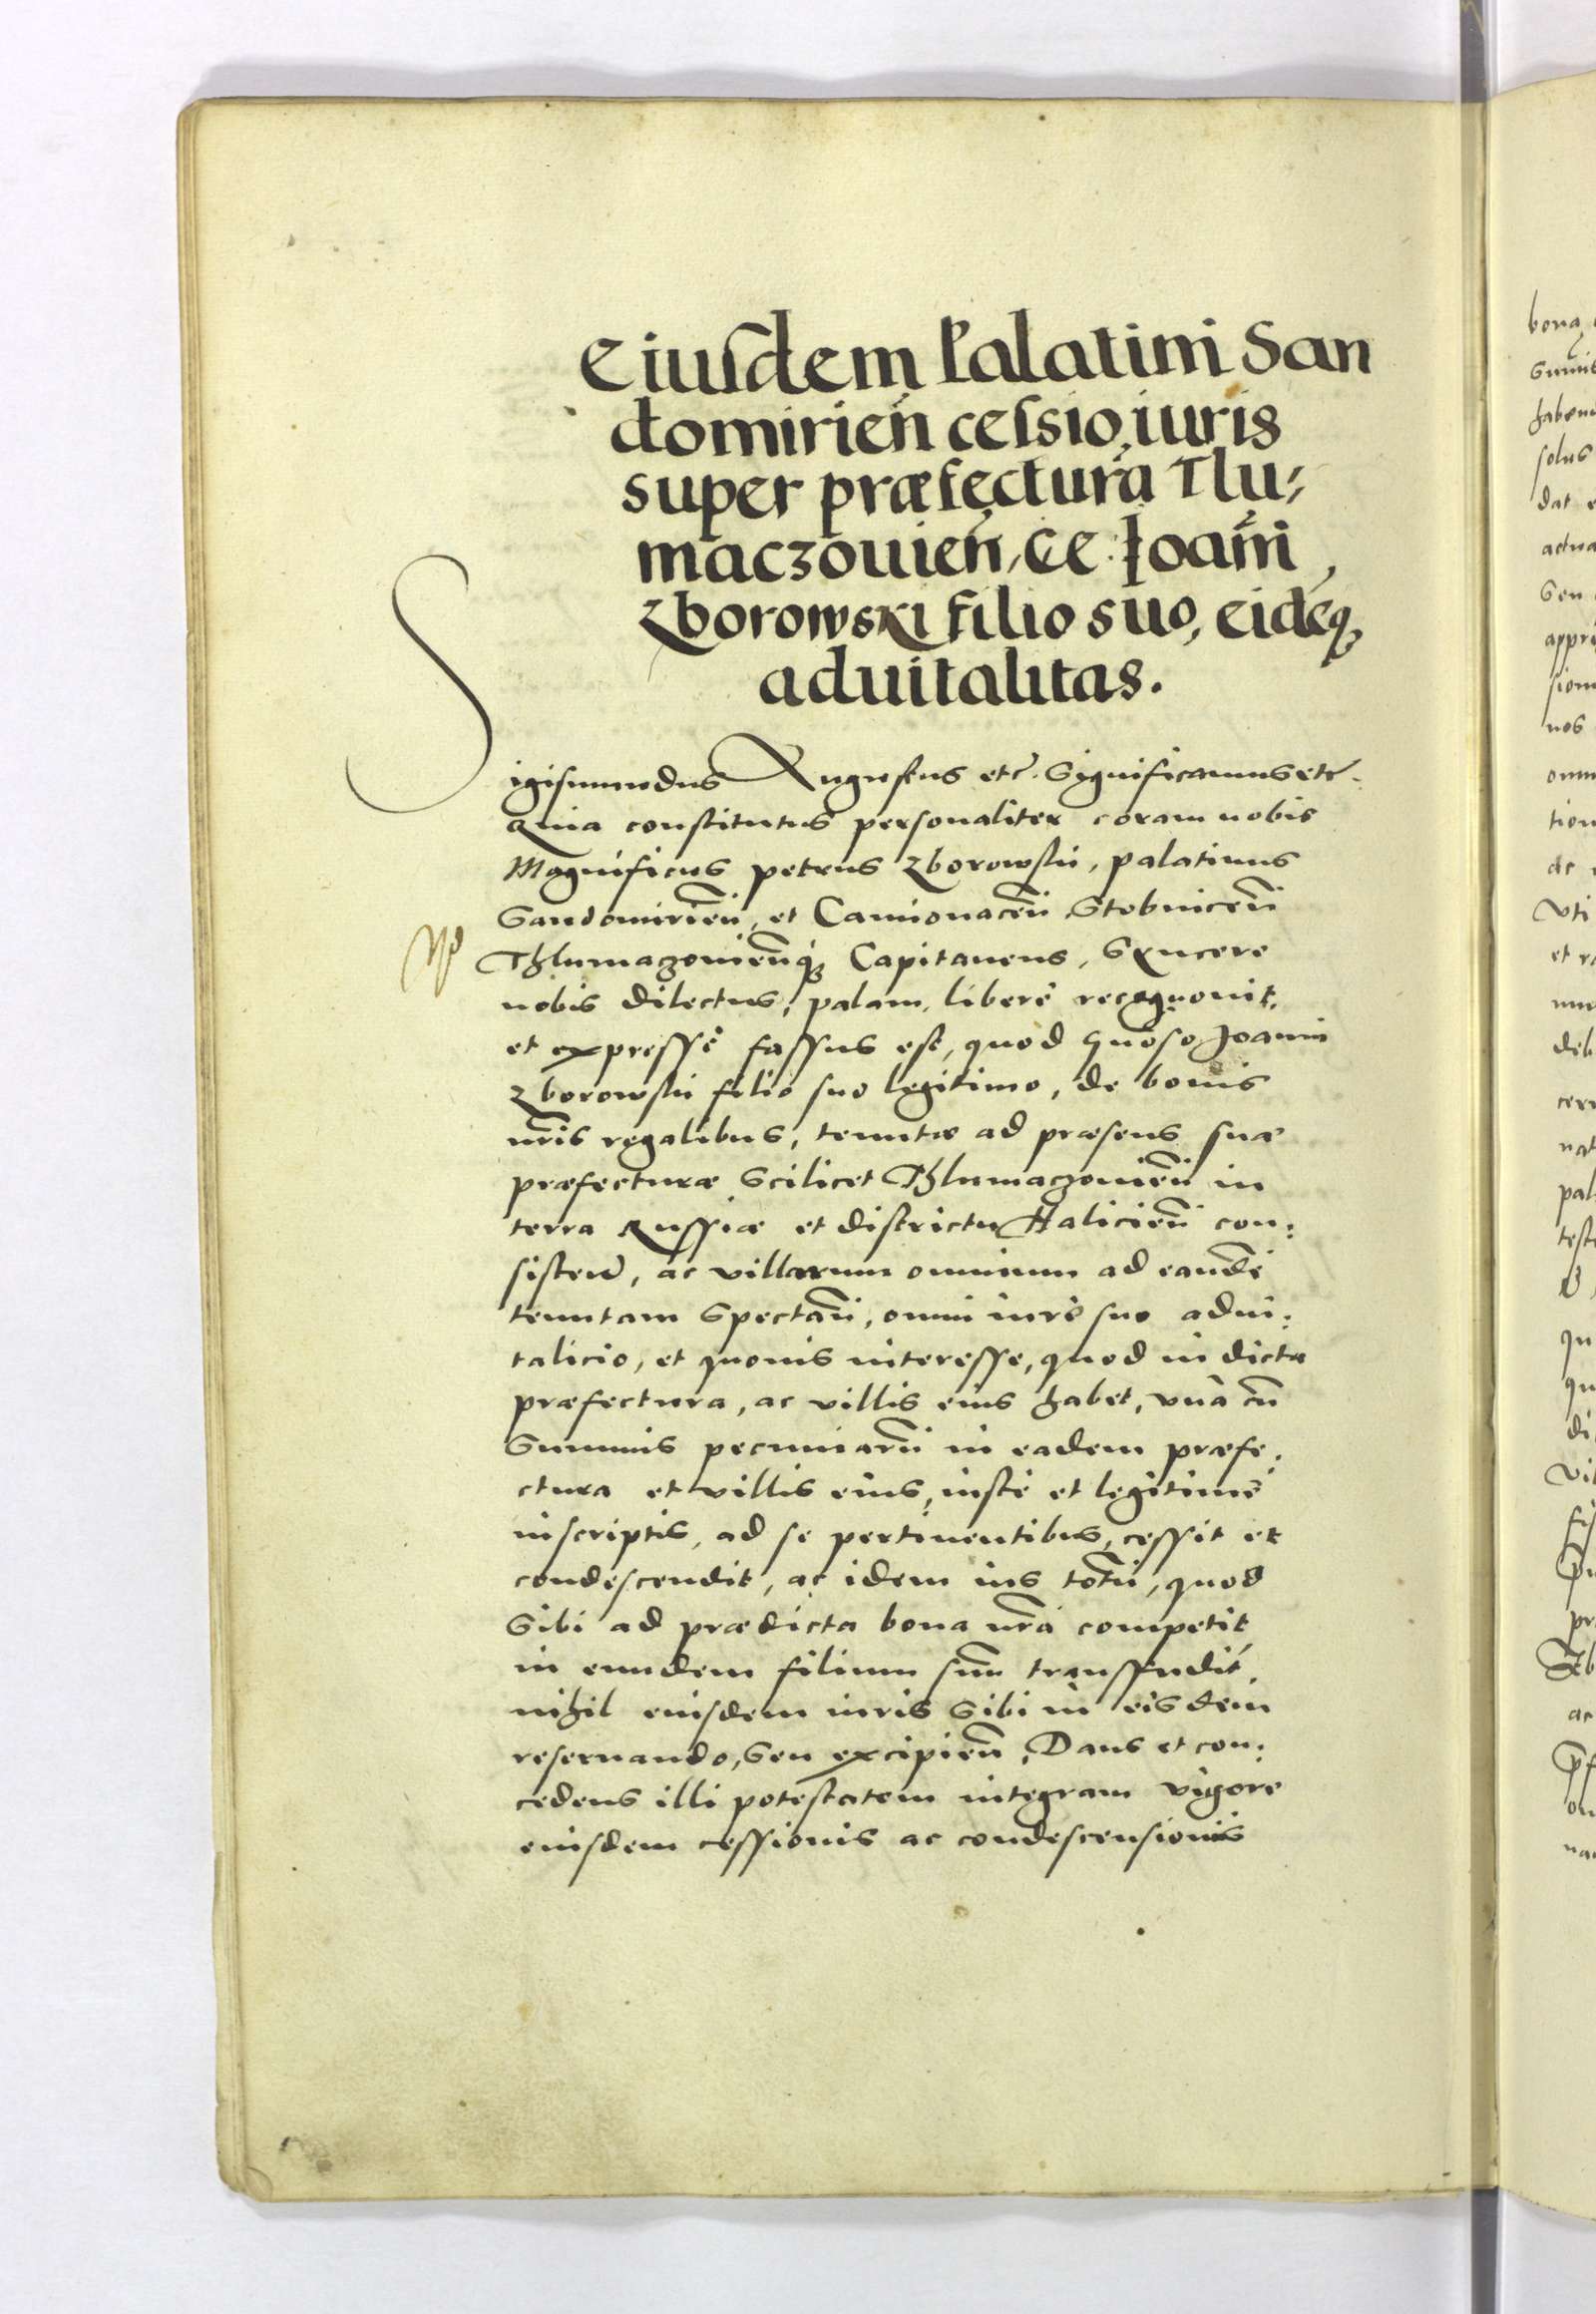 Eiusdem Palatini San
domirień cessio iuris
super præfectura Tlu,
maczouień, Ce: Ioańi
Zborowski filio suo, eidēq
aduitalitas.
Sigismundus Augustus etc. Significamus etc.
Quia constitutus personaliter coram nobis
Magnificus petrus Zborowski, palatinus
Sandomirień, et Camionaceń Stobniceń
Thlumaczouieńq Capitaneus, Syncere
nobis dilectus, palam, liberè recognouit,
et expressè fassus est, quod Gnoso Joanni
Zborowski filio suo legitimo, de bonis
nris regalibus, tenutæ ad præsens suæ
præfecturæ Scilicet Thlumaczouień in
terra Russiæ et districtu Halicień con:
sisteñ, ac villarum omnium ad eandē
tenutam Spectań, omni iure suo adui:
talicio, et quouis interesse, quod in dicta
præfectura, ac villis eius habet, vnà cū
Summis pecuniarū in eadem præfe:
ctura et villis eius, iustè et legitimè
inscriptis, ad se pertinentibus, cessit et
condescendit, ac idem ius totū, quod
Sibi ad prædicta bona nrā competit
in eundem filium suū transfudit,
nihil eiusdem iuris Sibi in eisdem
reseruando, Seu excipień, Dans et con:
cedens illi potestatem integram vigore
eiusdem cessionis ac condescensionis